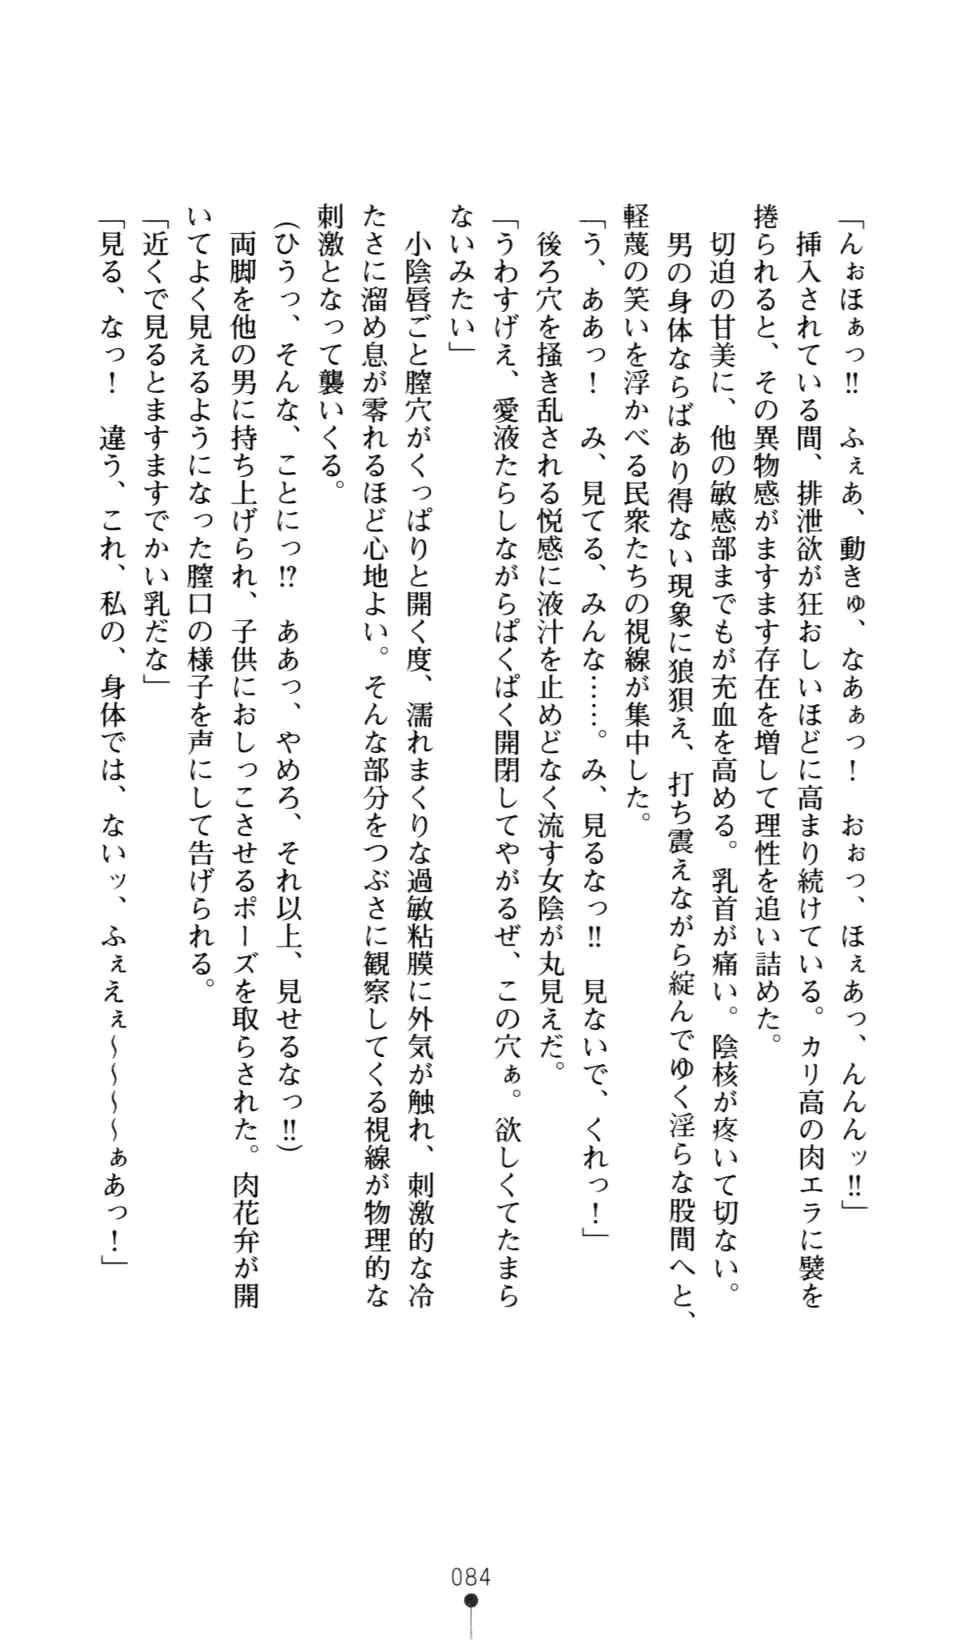 「んぉほぁっ‼　ふぇあ、動きゅ、なあぁっ！　おぉっ、ほぇあっ、んんんッ‼」
　挿入されている間、排泄欲が狂おしいほどに高まり続けている。カリ高の肉エラに襞を
捲られると、その異物感がますます存在を増して理性を追い詰めた。
　切迫の甘美に、他の敏感部までもが充血を高める。乳首が痛い。陰核が疼いて切ない。
　男の身体ならばあり得ない現象に狼狽え、打ち震えながら綻んでゆく淫らな股間へと、
軽蔑の笑いを浮かべる民衆たちの視線が集中した。
「う、ああっ！　み、見てる、みんな……。み、見るなっ‼　見ないで、くれっ！」
　後ろ穴を掻き乱される悦感に液汁を止めどなく流す女陰が丸見えだ。
「うわすげえ、愛液たらしながらぱくぱく開閉してやがるぜ、この穴ぁ。欲しくてたまら
ないみたい」
　小陰唇ごと膣穴がくっぱりと開く度、濡れまくりな過敏粘膜に外気が触れ、刺激的な冷
たさに溜め息が零れるほど心地よい。そんな部分をつぶさに観察してくる視線が物理的な
刺激となって襲いくる。
（ひうっ、そんな、ことにっ⁉　ああっ、やめろ、それ以上、見せるなっ‼）
　両脚を他の男に持ち上げられ、子供におしっこさせるポーズを取らされた。肉花弁が開
いてよく見えるようになった膣口の様子を声にして告げられる。
「近くで見るとますますでかい乳だな」
「見る、なっ！　違う、これ、私の、身体では、ないッ、ふぇえぇ～～～～ぁあっ！」
084